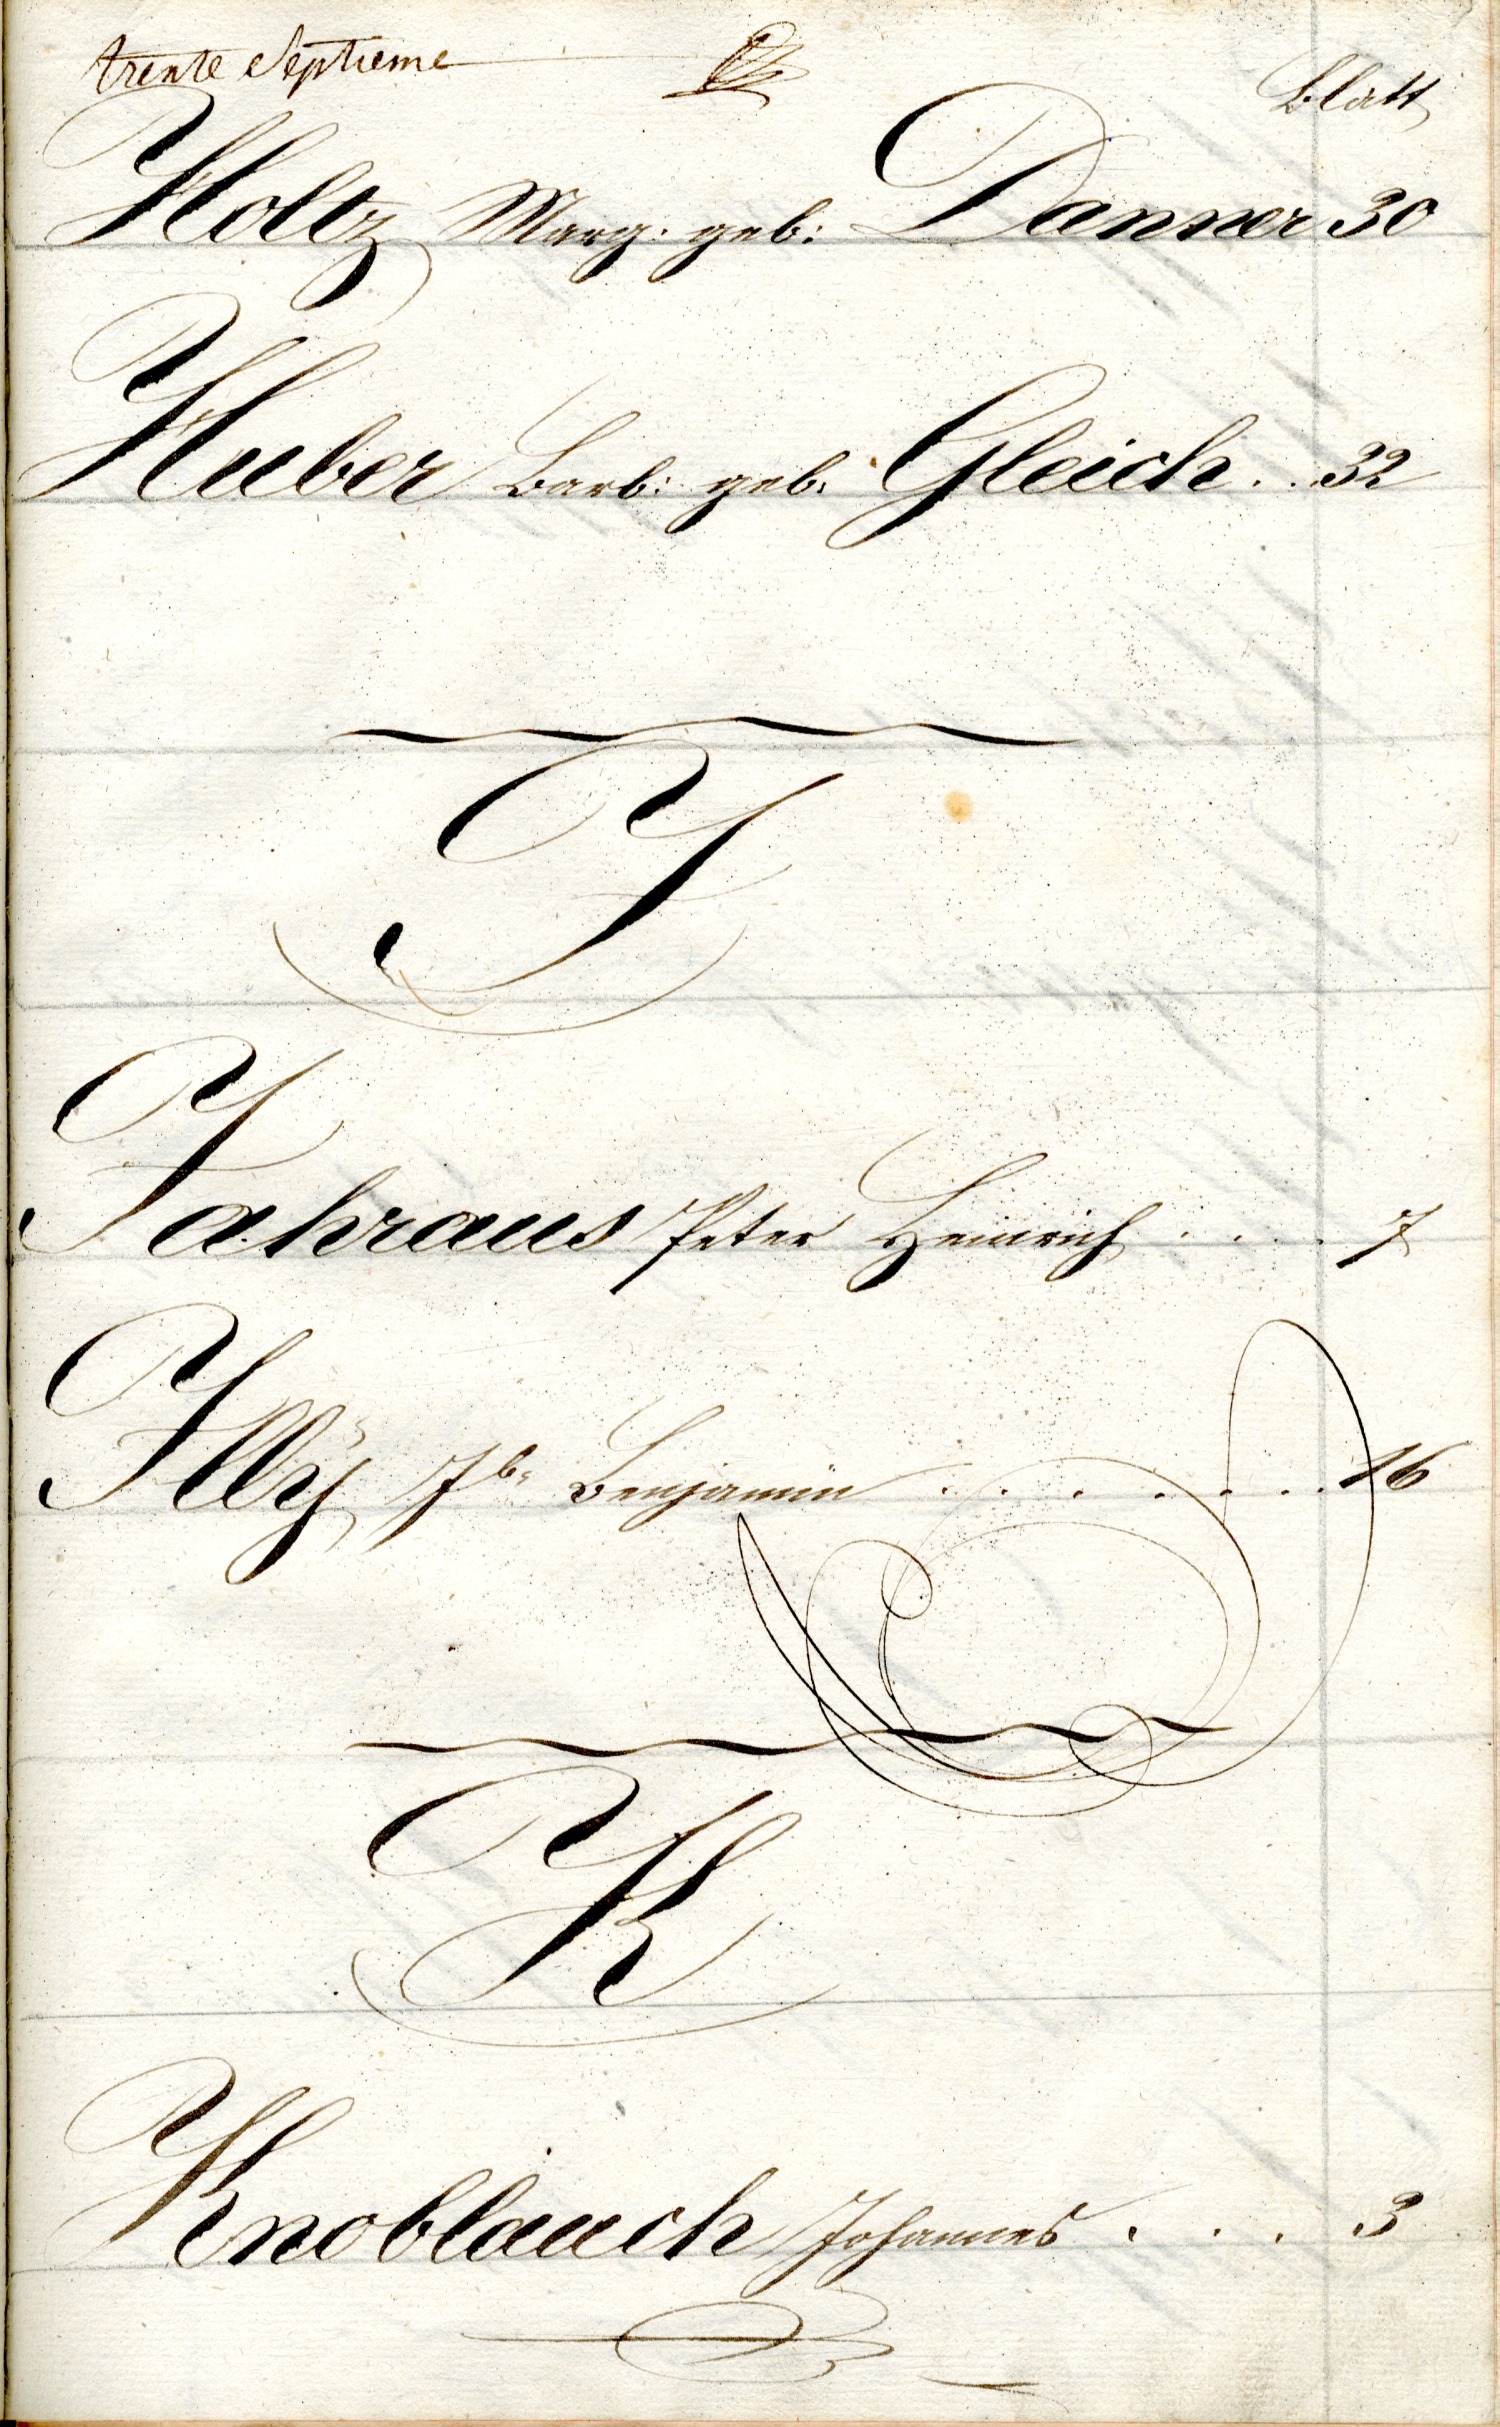 trente Septieme
Blatt
Holtz Marg: geb: Danner 30
Huber Barb: geb: Gleich . . 32
J
Jahraus Peter Heinrich . . . . 7
Illÿ Jb: Benjamin . . . . . . . 16
K
Knoblauch Johannes . . . 3